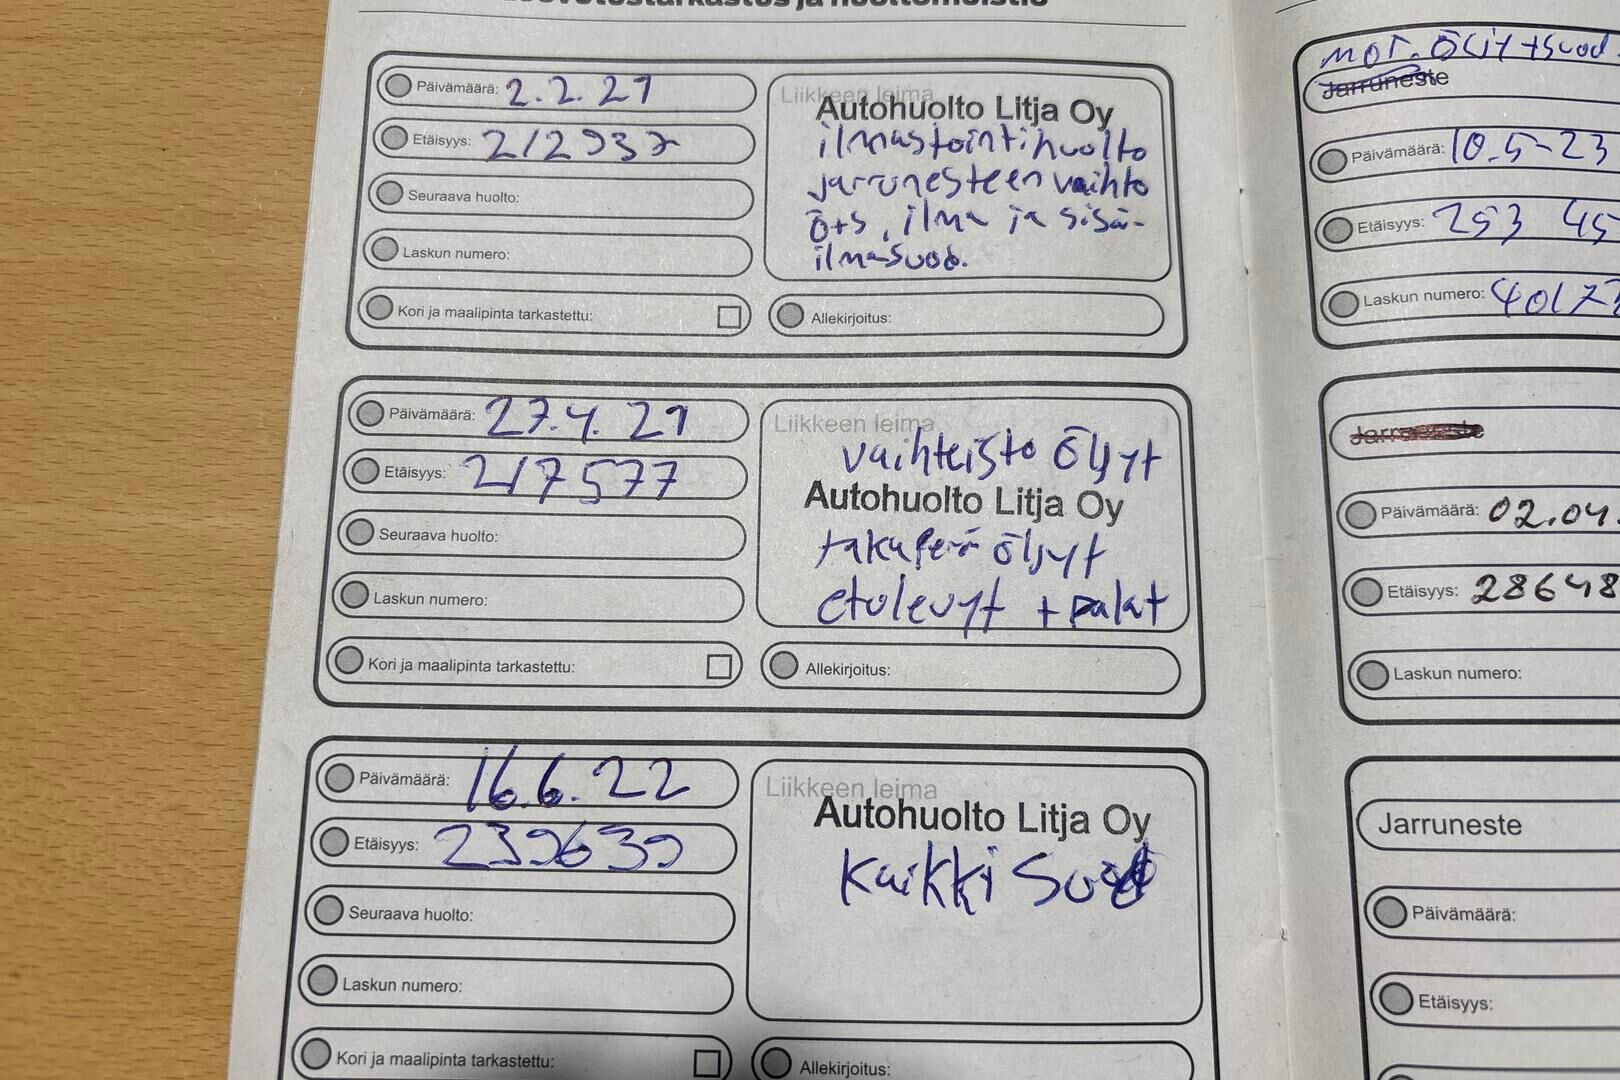 Päivämäärä: 2.2.21
Etäisyys: 212937
Seuraava huolto:
Laskun numero:
Kori ja maalipinta tarkastettu:
Liikkeen leima
Autohuolto Litja Oy
ilmastointihuolto
jarrunesteen vaihto
ö+s, ilma ja sisä-
ilmasuod.
Allekirjoitus:
Päivämäärä: 27.4.21
Etäisyys: 217577
Seuraava huolto:
Laskun numero:
Kori ja maalipinta tarkastettu:
Liikkeen leima
vaihteisto öljyt
Autohuolto Litja Oy
takaperä öljyt
etulevyt + palat
Allekirjoitus:
Päivämäärä: 16.6.22
Etäisyys: 239639
Seuraava huolto:
Laskun numero:
Kori ja maalipinta tarkastettu:
Liikkeen leima
Autohuolto Litja Oy
Kaikki suod
Allekirjoitus:
MOT. ÖLJY+suod.
Jarruneste
Päivämäärä: 10.5-23
Etäisyys: 253 45
Laskun numero: 40177
Jarruneste
Päivämäärä: 02.04.
Etäisyys: 28648
Laskun numero:
Jarruneste
Päivämäärä:
Etäisyys: